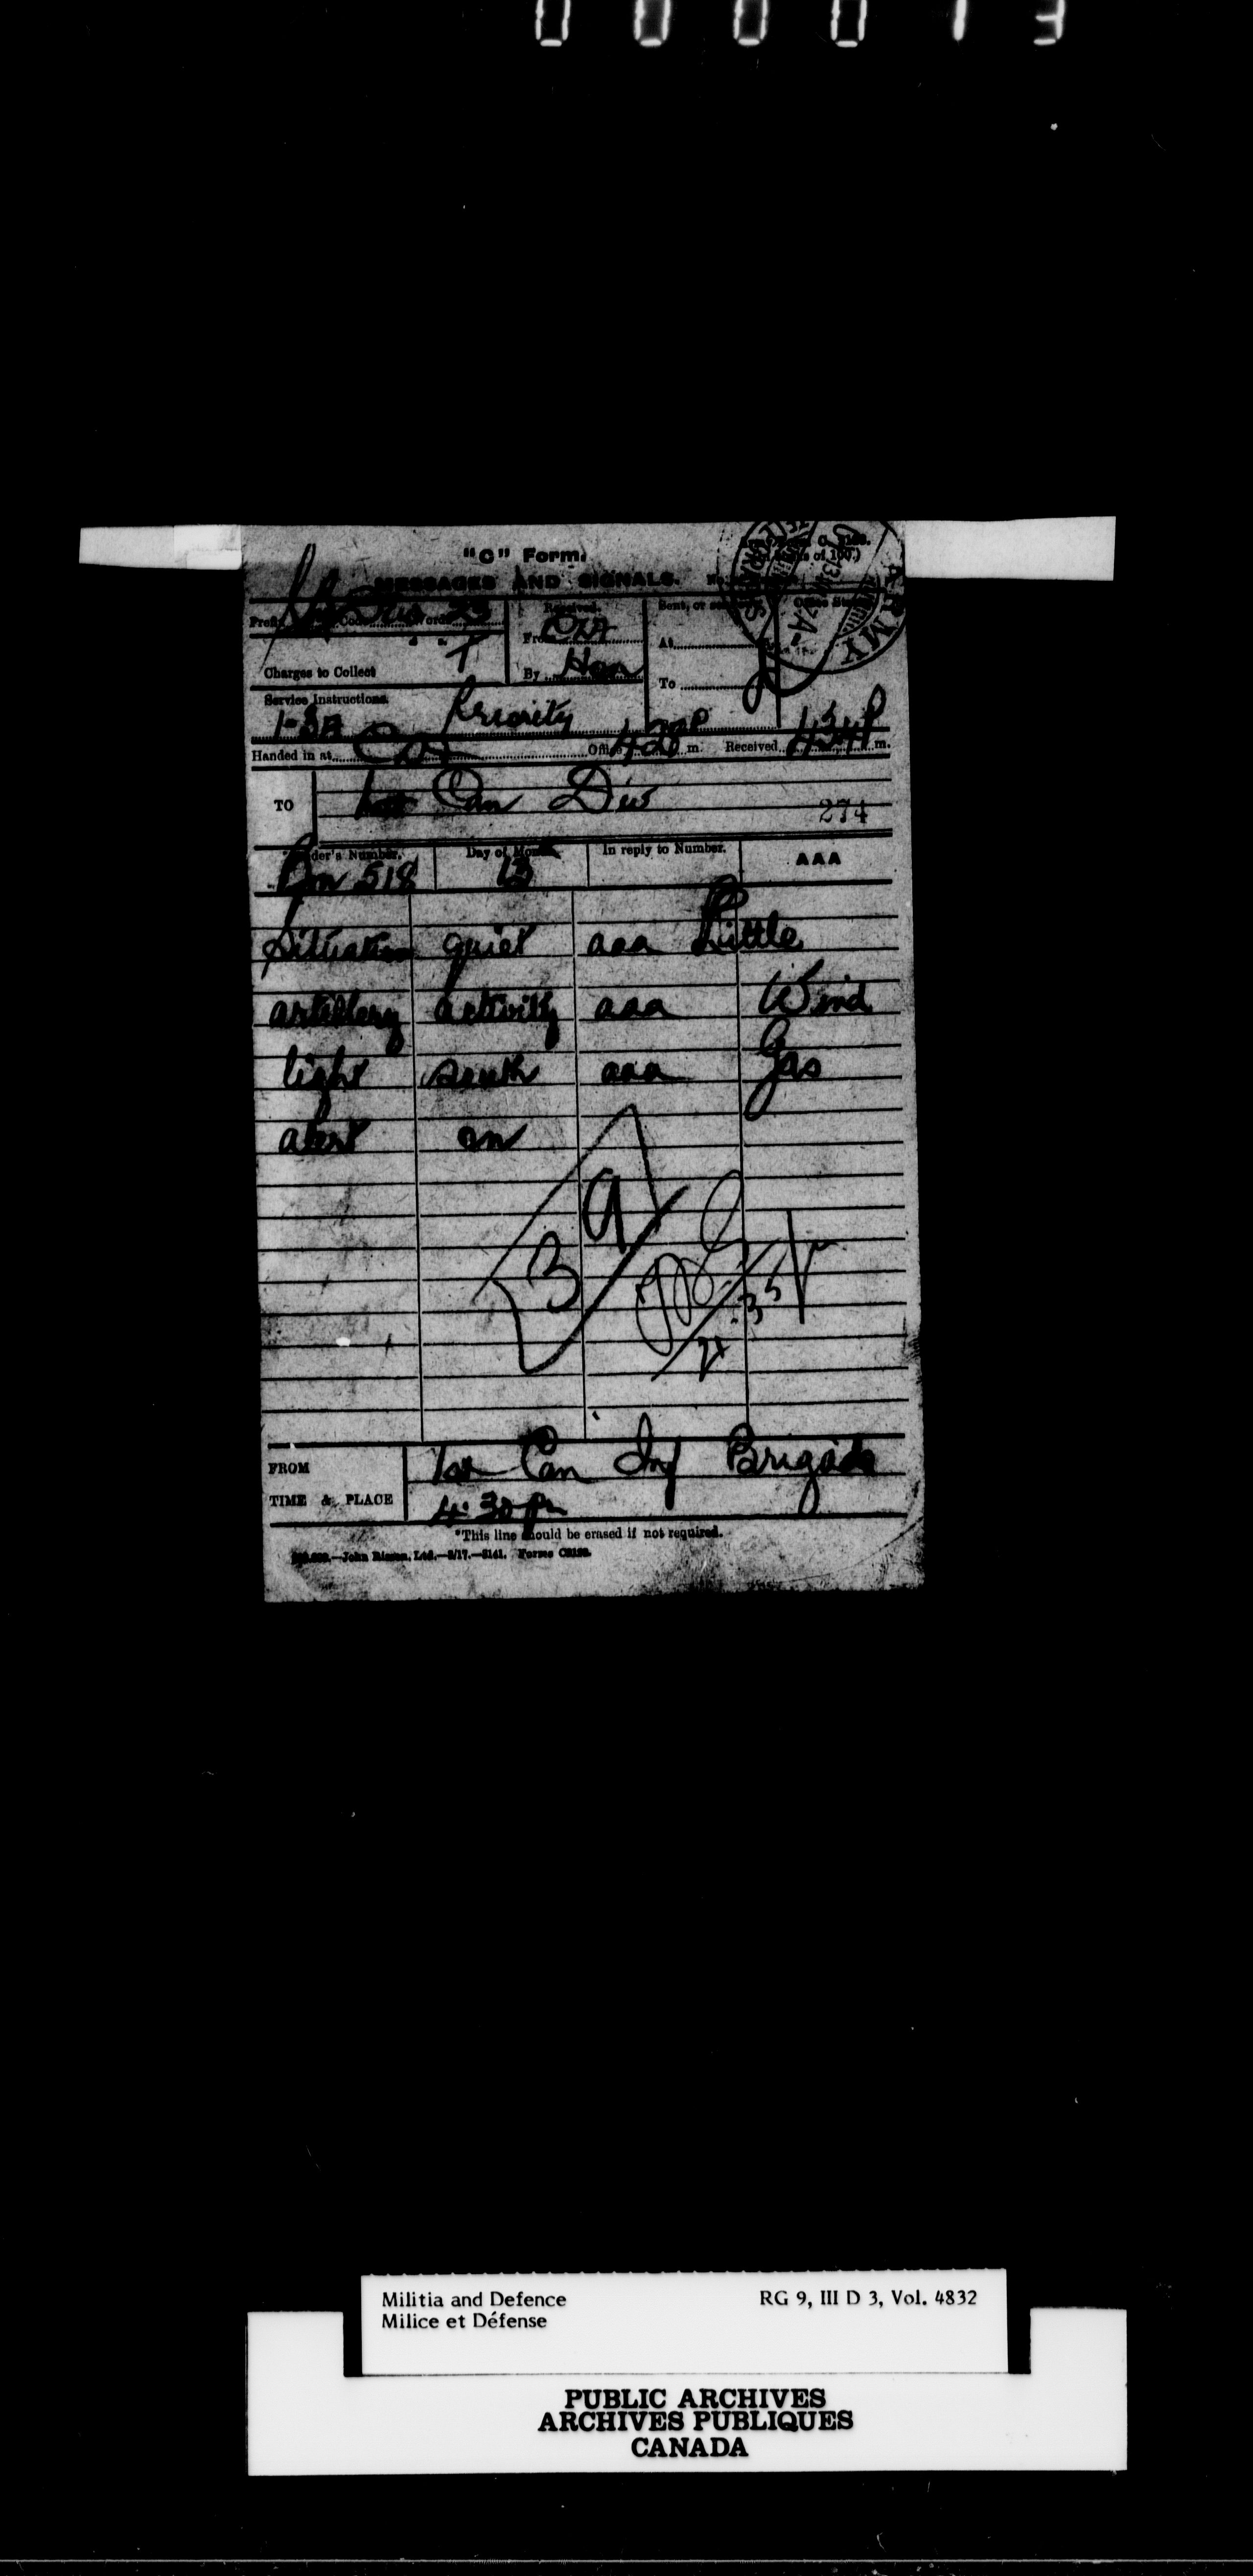 0 0 0 0 1 3
"C" Form.
MESSAGES AND SIGNALS.
Prefix Code Words 23
Received. From By
Sent, or sent
At
To
Charges to Collect
Service Instructions.
Priority
Handed in at Office 4 20 P m. Received 4 34 P m.
TO 1st Can Div
274
Sender's Number. Day of Month In reply to Number. AAA
Bm 518 13
Situation quiet aaa Little
artillery activity aaa Wind
light south aaa Gas
alert on
FROM 1st Can Inf Brigade
TIME & PLACE 4.30 pm
*This line should be erased if not required.
Militia and Defence RG 9, III D 3, Vol. 4832
Milice et Défense
PUBLIC ARCHIVES
ARCHIVES PUBLIQUES
CANADA